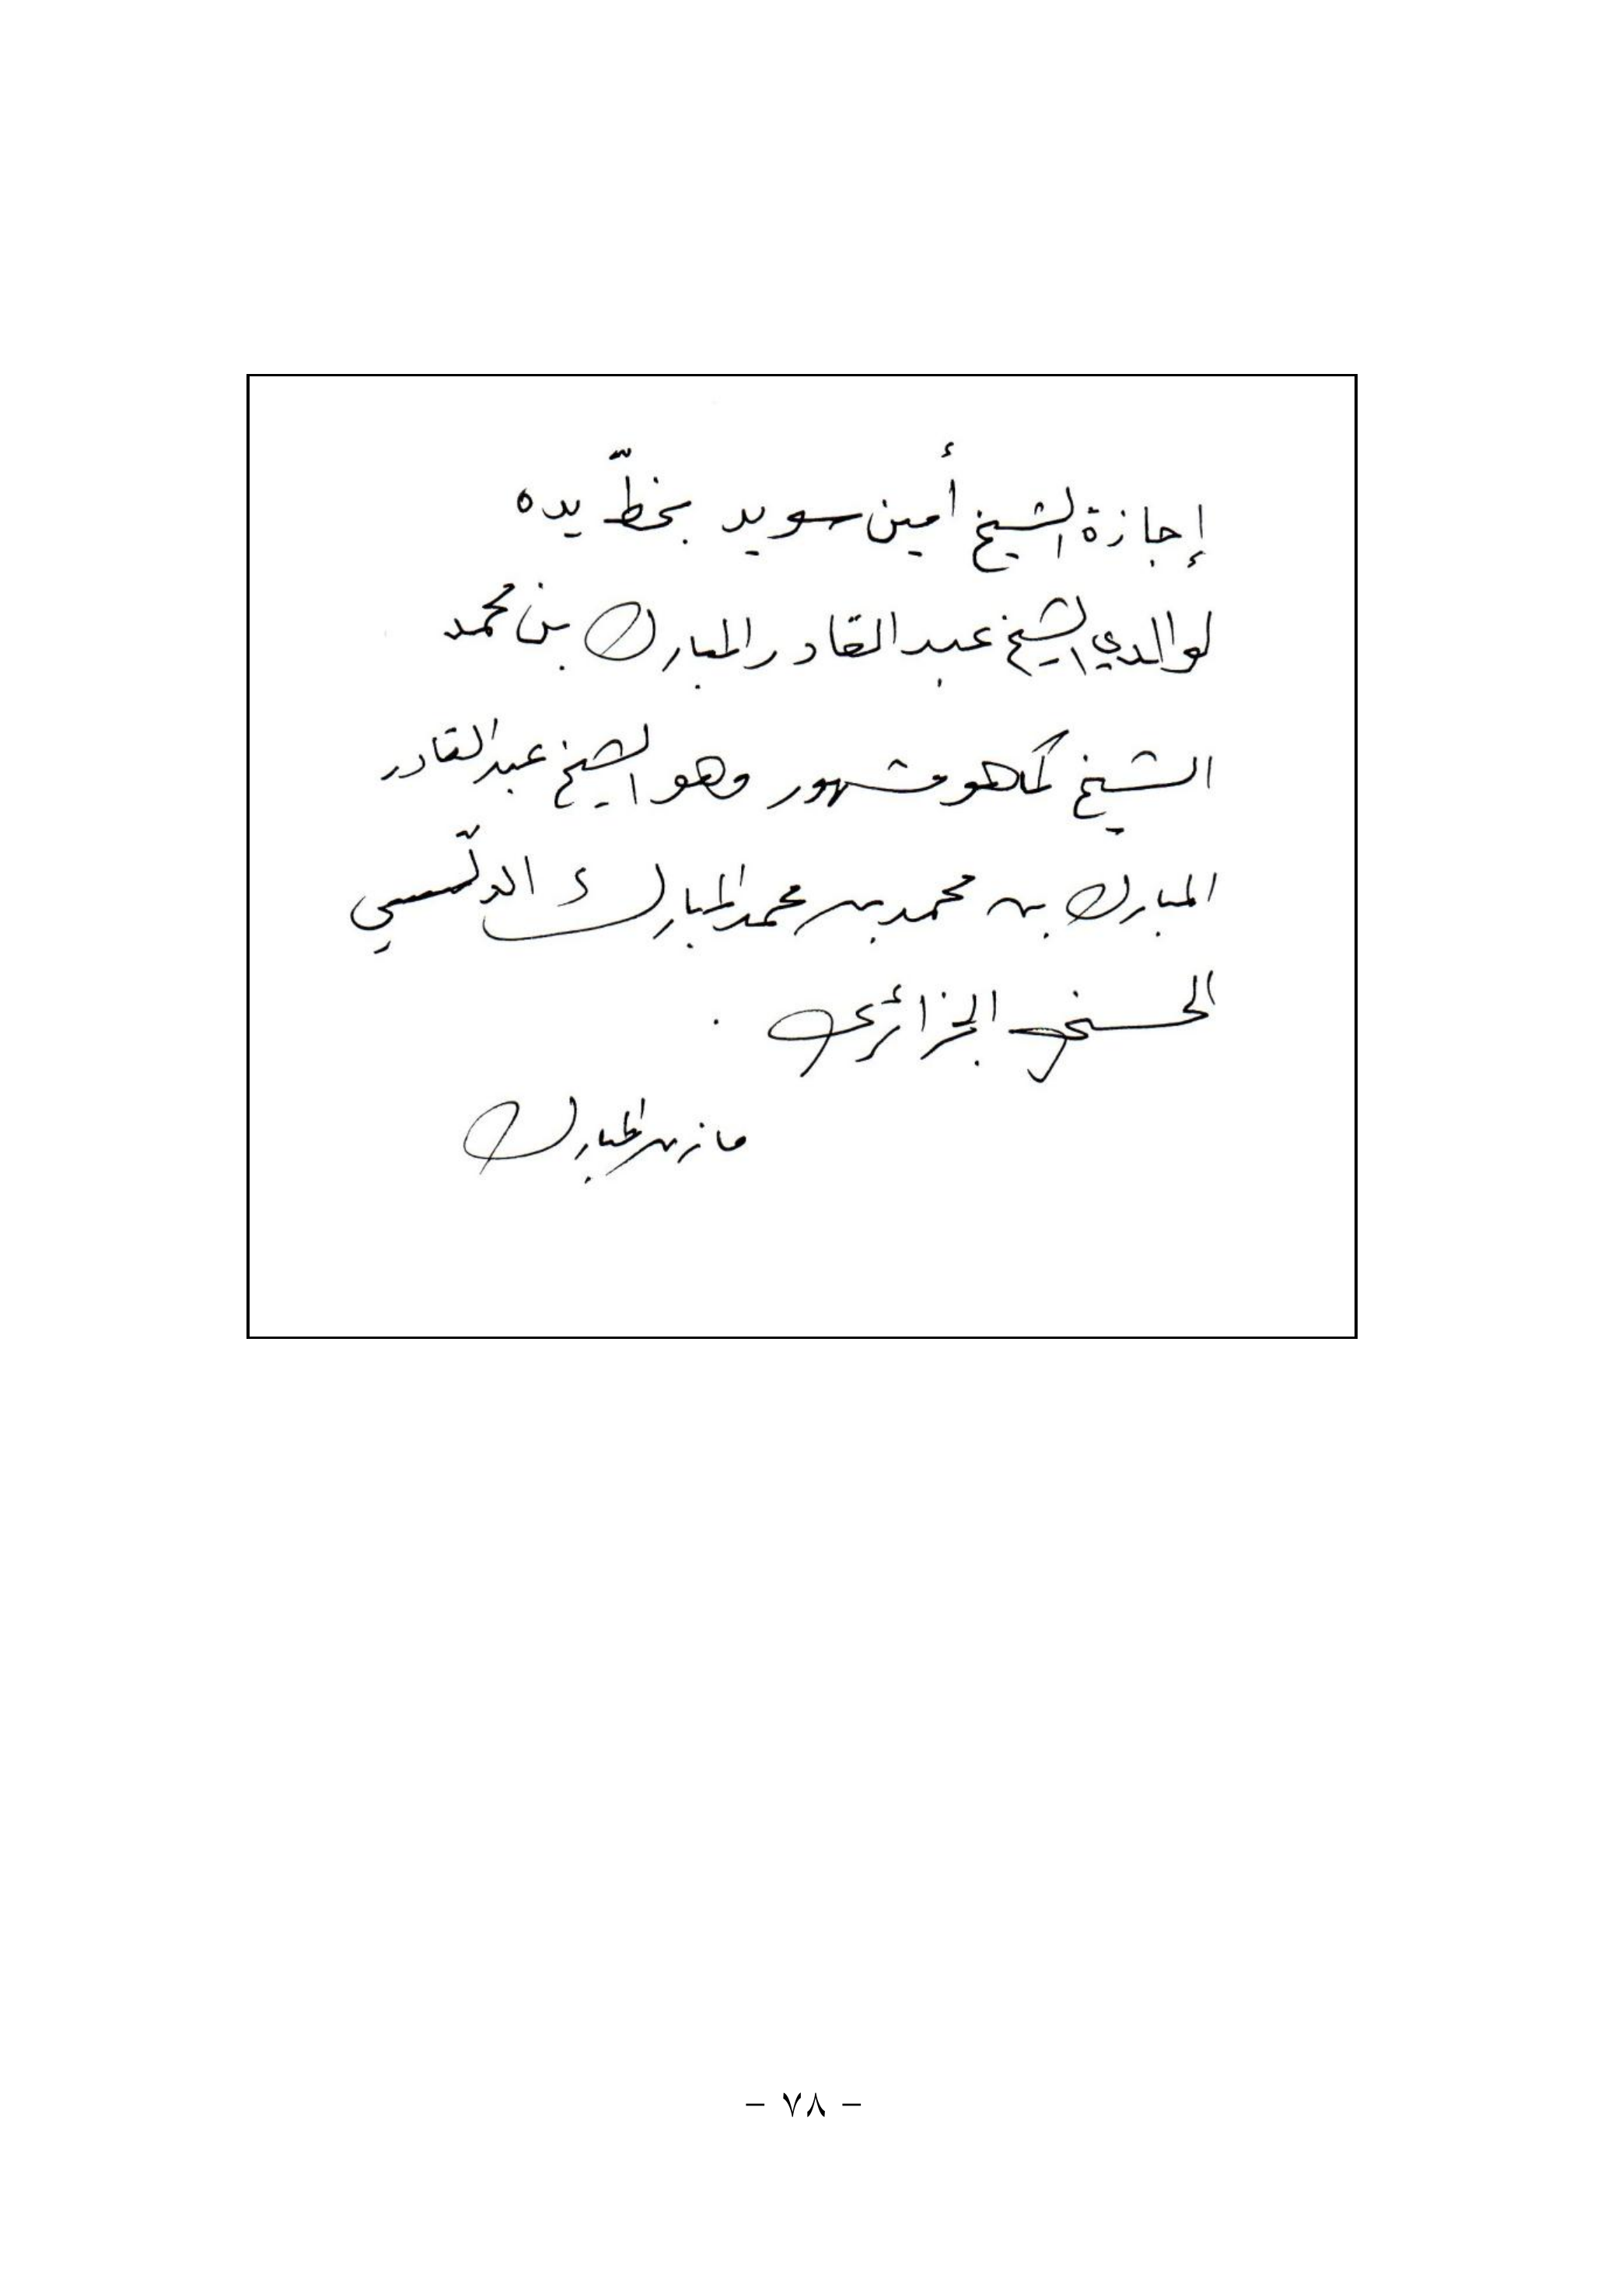 إجازة الشيخ أمين سويد بخطّ يده
لوالدي الشيخ عبد القادر المبارك بن محمد
الشيخ كما هو مشهور وهو الشيخ عبد القادر
المبارك بن محمد بن محمد المبارك الدلّسي
الحسني الجزائري .
مازن المبارك
– ٧٨ –